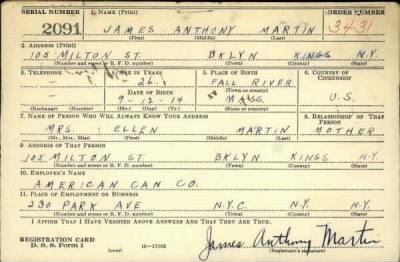 SERIAL NUMBER 1. NAME (Print) ORDER NUMBER
2091 JAMES ANTHONY MARTIN 3431
(First) (Middle) (Last)
2. ADDRESS (Print)
105 MILTON ST. BKLYN KINGS N.Y.
(Number and street or R. F. D. number) (Town) (County) (State)
3. TELEPHONE 4. AGE IN YEARS 5. PLACE OF BIRTH 6. COUNTRY OF CITIZENSHIP
— 26 FALL RIVER
DATE OF BIRTH (Town or county)
— 9-12-14 MASS. U.S.
(Exchange) (Number) (Mo.) (Day) (Yr.) (State or country)
7. NAME OF PERSON WHO WILL ALWAYS KNOW YOUR ADDRESS 8. RELATIONSHIP OF THAT PERSON
MRS. ELLEN MARTIN MOTHER
(Mr., Mrs., Miss) (First) (Middle) (Last)
9. ADDRESS OF THAT PERSON
105 MILTON ST. BKLYN KINGS N.Y.
(Number and street or R. F. D. number) (Town) (County) (State)
10. EMPLOYER'S NAME
AMERICAN CAN CO.
11. PLACE OF EMPLOYMENT OR BUSINESS
230 PARK AVE N.Y.C. N.Y. N.Y.
(Number and street or R. F. D. number) (Town) (County) (State)
I AFFIRM THAT I HAVE VERIFIED ABOVE ANSWERS AND THAT THEY ARE TRUE.
REGISTRATION CARD
D. S. S. Form 1 (over) 16—17105
James Anthony Martin
(Registrant's signature)